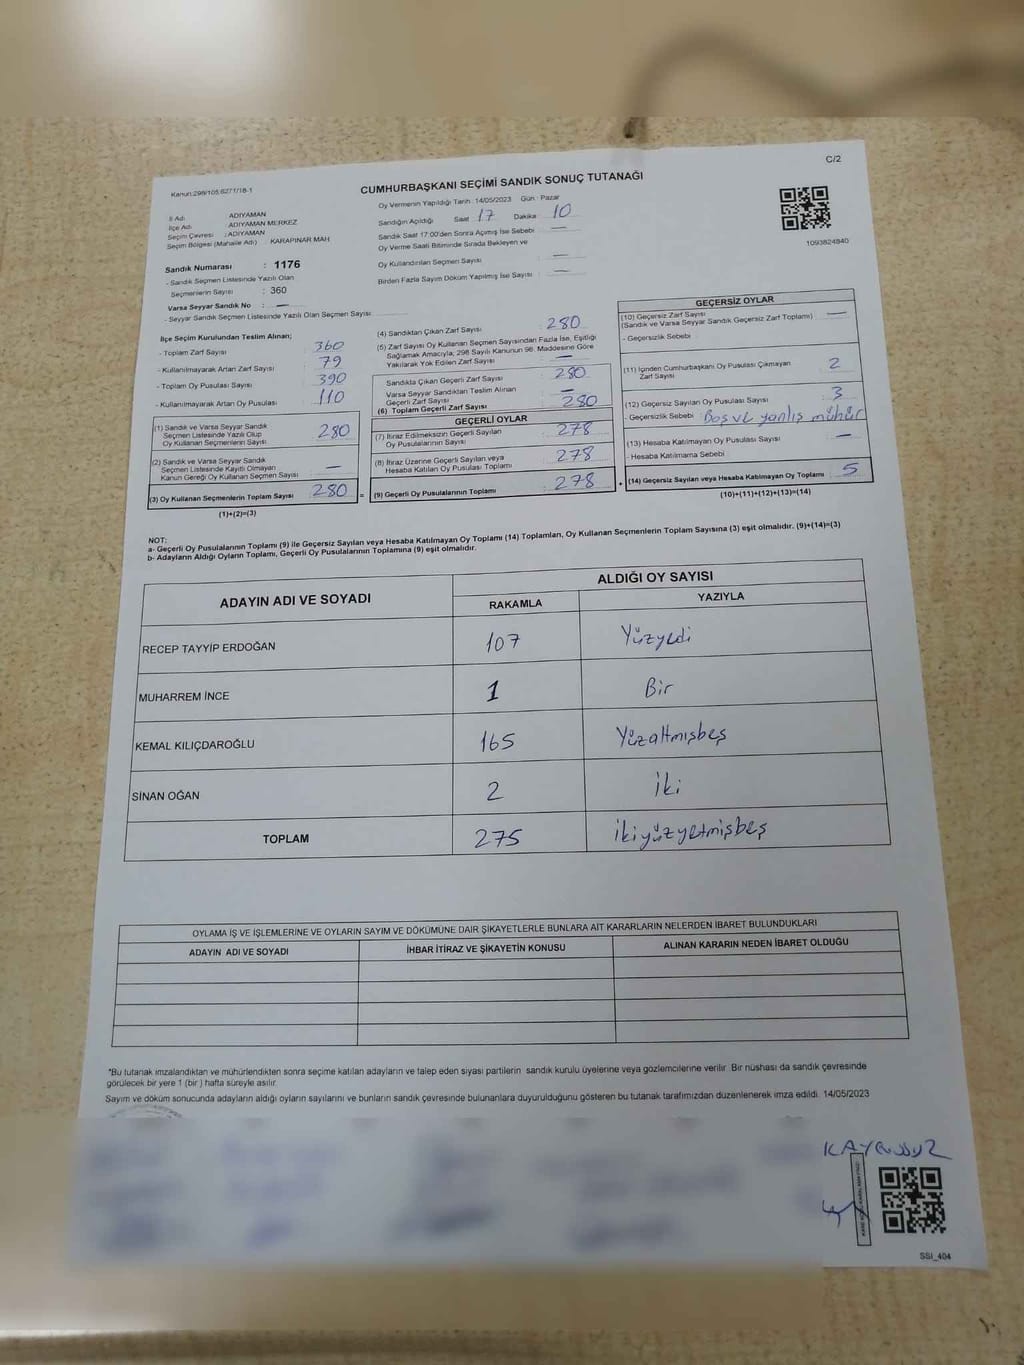 Kanun:298/105,6271/18-1
C/2
CUMHURBAŞKANI SEÇİMİ SANDIK SONUÇ TUTANAĞI
İl Adı : ADIYAMAN
İlçe Adı : ADIYAMAN MERKEZ
Seçim Çevresi : ADIYAMAN
Seçim Bölgesi (Mahalle Adı) : KARAPINAR MAH
Sandık Numarası : 1176
- Sandık Seçmen Listesinde Yazılı Olan
Seçmenlerin Sayısı : 360
Varsa Seyyar Sandık No : —
- Seyyar Sandık Seçmen Listesinde Yazılı Olan Seçmen Sayısı:
Oy Vermenin Yapıldığı Tarih : 14/05/2023 Gün : Pazar
Sandığın Açıldığı Saat 17 Dakika 10
Sandık Saat 17:00'den Sonra Açımış İse Sebebi : —
Oy Verme Saati Bitiminde Sırada Bekleyen ve
Oy Kullandırılan Seçmen Sayısı : —
Birden Fazla Sayım Döküm Yapılmış İse Sayısı : —
1093824840
İlçe Seçim Kurulundan Teslim Alınan;
- Toplam Zarf Sayısı 360
- Kullanılmayarak Artan Zarf Sayısı 79
- Toplam Oy Pusulası Sayısı 390
- Kullanılmayarak Artan Oy Pusulası 110
(1) Sandık ve Varsa Seyyar Sandık
Seçmen Listesinde Yazılı Olup
Oy Kullanan Seçmenlerin Sayısı 280
(2) Sandık ve Varsa Seyyar Sandık
Seçmen Listesinde Kayıtlı Olmayan
Kanun Gereği Oy Kullanan Seçmen Sayısı —
(3) Oy Kullanan Seçmenlerin Toplam Sayısı 280 =
(1)+(2)=(3)
(4) Sandıktan Çıkan Zarf Sayısı : 280
(5) Zarf Sayısı Oy Kullanan Seçmen Sayısından Fazla İse, Eşitliği
Sağlamak Amacıyla, 298 Sayılı Kanunun 98. Maddesine Göre
Yakılarak Yok Edilen Zarf Sayısı : —
Sandıkta Çıkan Geçerli Zarf Sayısı : 280
Varsa Seyyar Sandıktan Teslim Alınan
Geçerli Zarf Sayısı : —
(6) Toplam Geçerli Zarf Sayısı 280
GEÇERLİ OYLAR
(7) İtiraz Edilmeksizin Geçerli Sayılan
Oy Pusulasının Sayısı : 278
(8) İtiraz Üzerine Geçerli Sayılan veya
Hesaba Katılan Oy Pusulası Toplamı 278
(9) Geçerli Oy Pusulalarının Toplamı 278 +
GEÇERSİZ OYLAR
(10) Geçersiz Zarf Sayısı : —
(Sandık ve Varsa Seyyar Sandık Geçersiz Zarf Toplamı)
- Geçersizlik Sebebi
(11) İçinden Cumhurbaşkanı Oy Pusulası Çıkmayan
Zarf Sayısı 2
(12) Geçersiz Sayılan Oy Pusulası Sayısı : 3
- Geçersizlik Sebebi Boş ve yanlış mühür
(13) Hesaba Katılmayan Oy Pusulası Sayısı : —
- Hesaba Katılmama Sebebi
(14) Geçersiz Sayılan veya Hesaba Katılmayan Oy Toplamı 5
(10)+(11)+(12)+(13)=(14)
NOT:
a- Geçerli Oy Pusulalarının Toplamı (9) ile Geçersiz Sayılan veya Hesaba Katılmayan Oy Toplamı (14) Toplamları, Oy Kullanan Seçmenlerin Toplam Sayısına (3) eşit olmalıdır. (9)+(14)=(3)
b- Adayların Aldığı Oyların Toplamı, Geçerli Oy Pusulalarının Toplamına (9) eşit olmalıdır.
ADAYIN ADI VE SOYADI
ALDIĞI OY SAYISI
RAKAMLA YAZIYLA
RECEP TAYYİP ERDOĞAN 107 Yüzyedi
MUHARREM İNCE 1 Bir
KEMAL KILIÇDAROĞLU 165 Yüzaltmışbeş
SİNAN OĞAN 2 İki
TOPLAM 275 İkiyüzyetmişbeş
OYLAMA İŞ VE İŞLEMLERİNE VE OYLARIN SAYIM VE DÖKÜMÜNE DAİR ŞİKAYETLERLE BUNLARA AİT KARARLARIN NELERDEN İBARET BULUNDUKLARI
ADAYIN ADI VE SOYADI İHBAR İTİRAZ VE ŞİKAYETİN KONUSU ALINAN KARARIN NEDEN İBARET OLDUĞU
*Bu tutanak imzalandıktan ve mühürlendikten sonra seçime katılan adayların ve talep eden siyasi partilerin sandık kurulu üyelerine veya gözlemcilerine verilir. Bir nüshası da sandık çevresinde
görülecek bir yere 1 (bir ) hafta süreyle asılır.
Sayım ve döküm sonucunda adayların aldığı oyların sayılarını ve bunların sandık çevresinde bulunanlara duyurulduğunu gösteren bu tutanak tarafımızdan düzenlenerek imza edildi. 14/05/2023
SSI_404